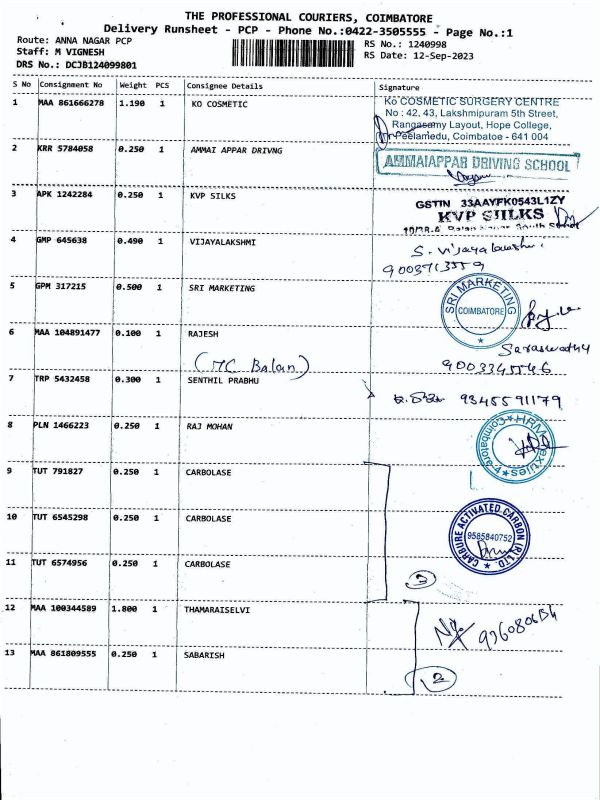 THE PROFESSIONAL COURIERS, COIMBATORE
Delivery Runsheet - PCP - Phone No.:0422-3505555 - Page No.:1
Route: ANNA NAGAR PCP
Staff: M VIGNESH
DRS No.: DCJB124099801
RS No.: 1240998
RS Date: 12-Sep-2023
S No Consignment No Weight PCS Consignee Details Signature
1 MAA 861666278 1.190 1 KO COSMETIC
Ko COSMETIC SURGERY CENTRE
No : 42, 43, Lakshmipuram 5th Street,
Rangasamy Layout, Hope College,
Peelamedu, Coimbatoe - 641 004
2 KRR 5784058 0.250 1 AMMAI APPAR DRIVNG
AMMAIAPPAR DRIVING SCHOOL
3 APK 1242284 0.250 1 KVP SILKS
GSTIN 33AAYFK0543L1ZY
KVP SIILKS
4 GMP 645638 0.490 1 VIJAYALAKSHMI
S. Vijayalakshmi
9003713559
5 GPM 317215 0.500 1 SRI MARKETING
SRI MARKETING
COIMBATORE
6 MAA 104891477 0.100 1 RAJESH
(MC Balan)
Saraswathy
9003345546
7 TRP 5432458 0.300 1 SENTHIL PRABHU
9345591179
8 PLN 1466223 0.250 1 RAJ MOHAN
HRM Textiles
Coimbatore-4
9 TUT 791827 0.250 1 CARBOLASE
10 TUT 6545298 0.250 1 CARBOLASE
CARBURE ACTIVATED CARBON (P) LTD.
9585840752
11 TUT 6574956 0.250 1 CARBOLASE
3
12 MAA 100344589 1.800 1 THAMARAISELVI
13 MAA 861809555 0.250 1 SABARISH
2